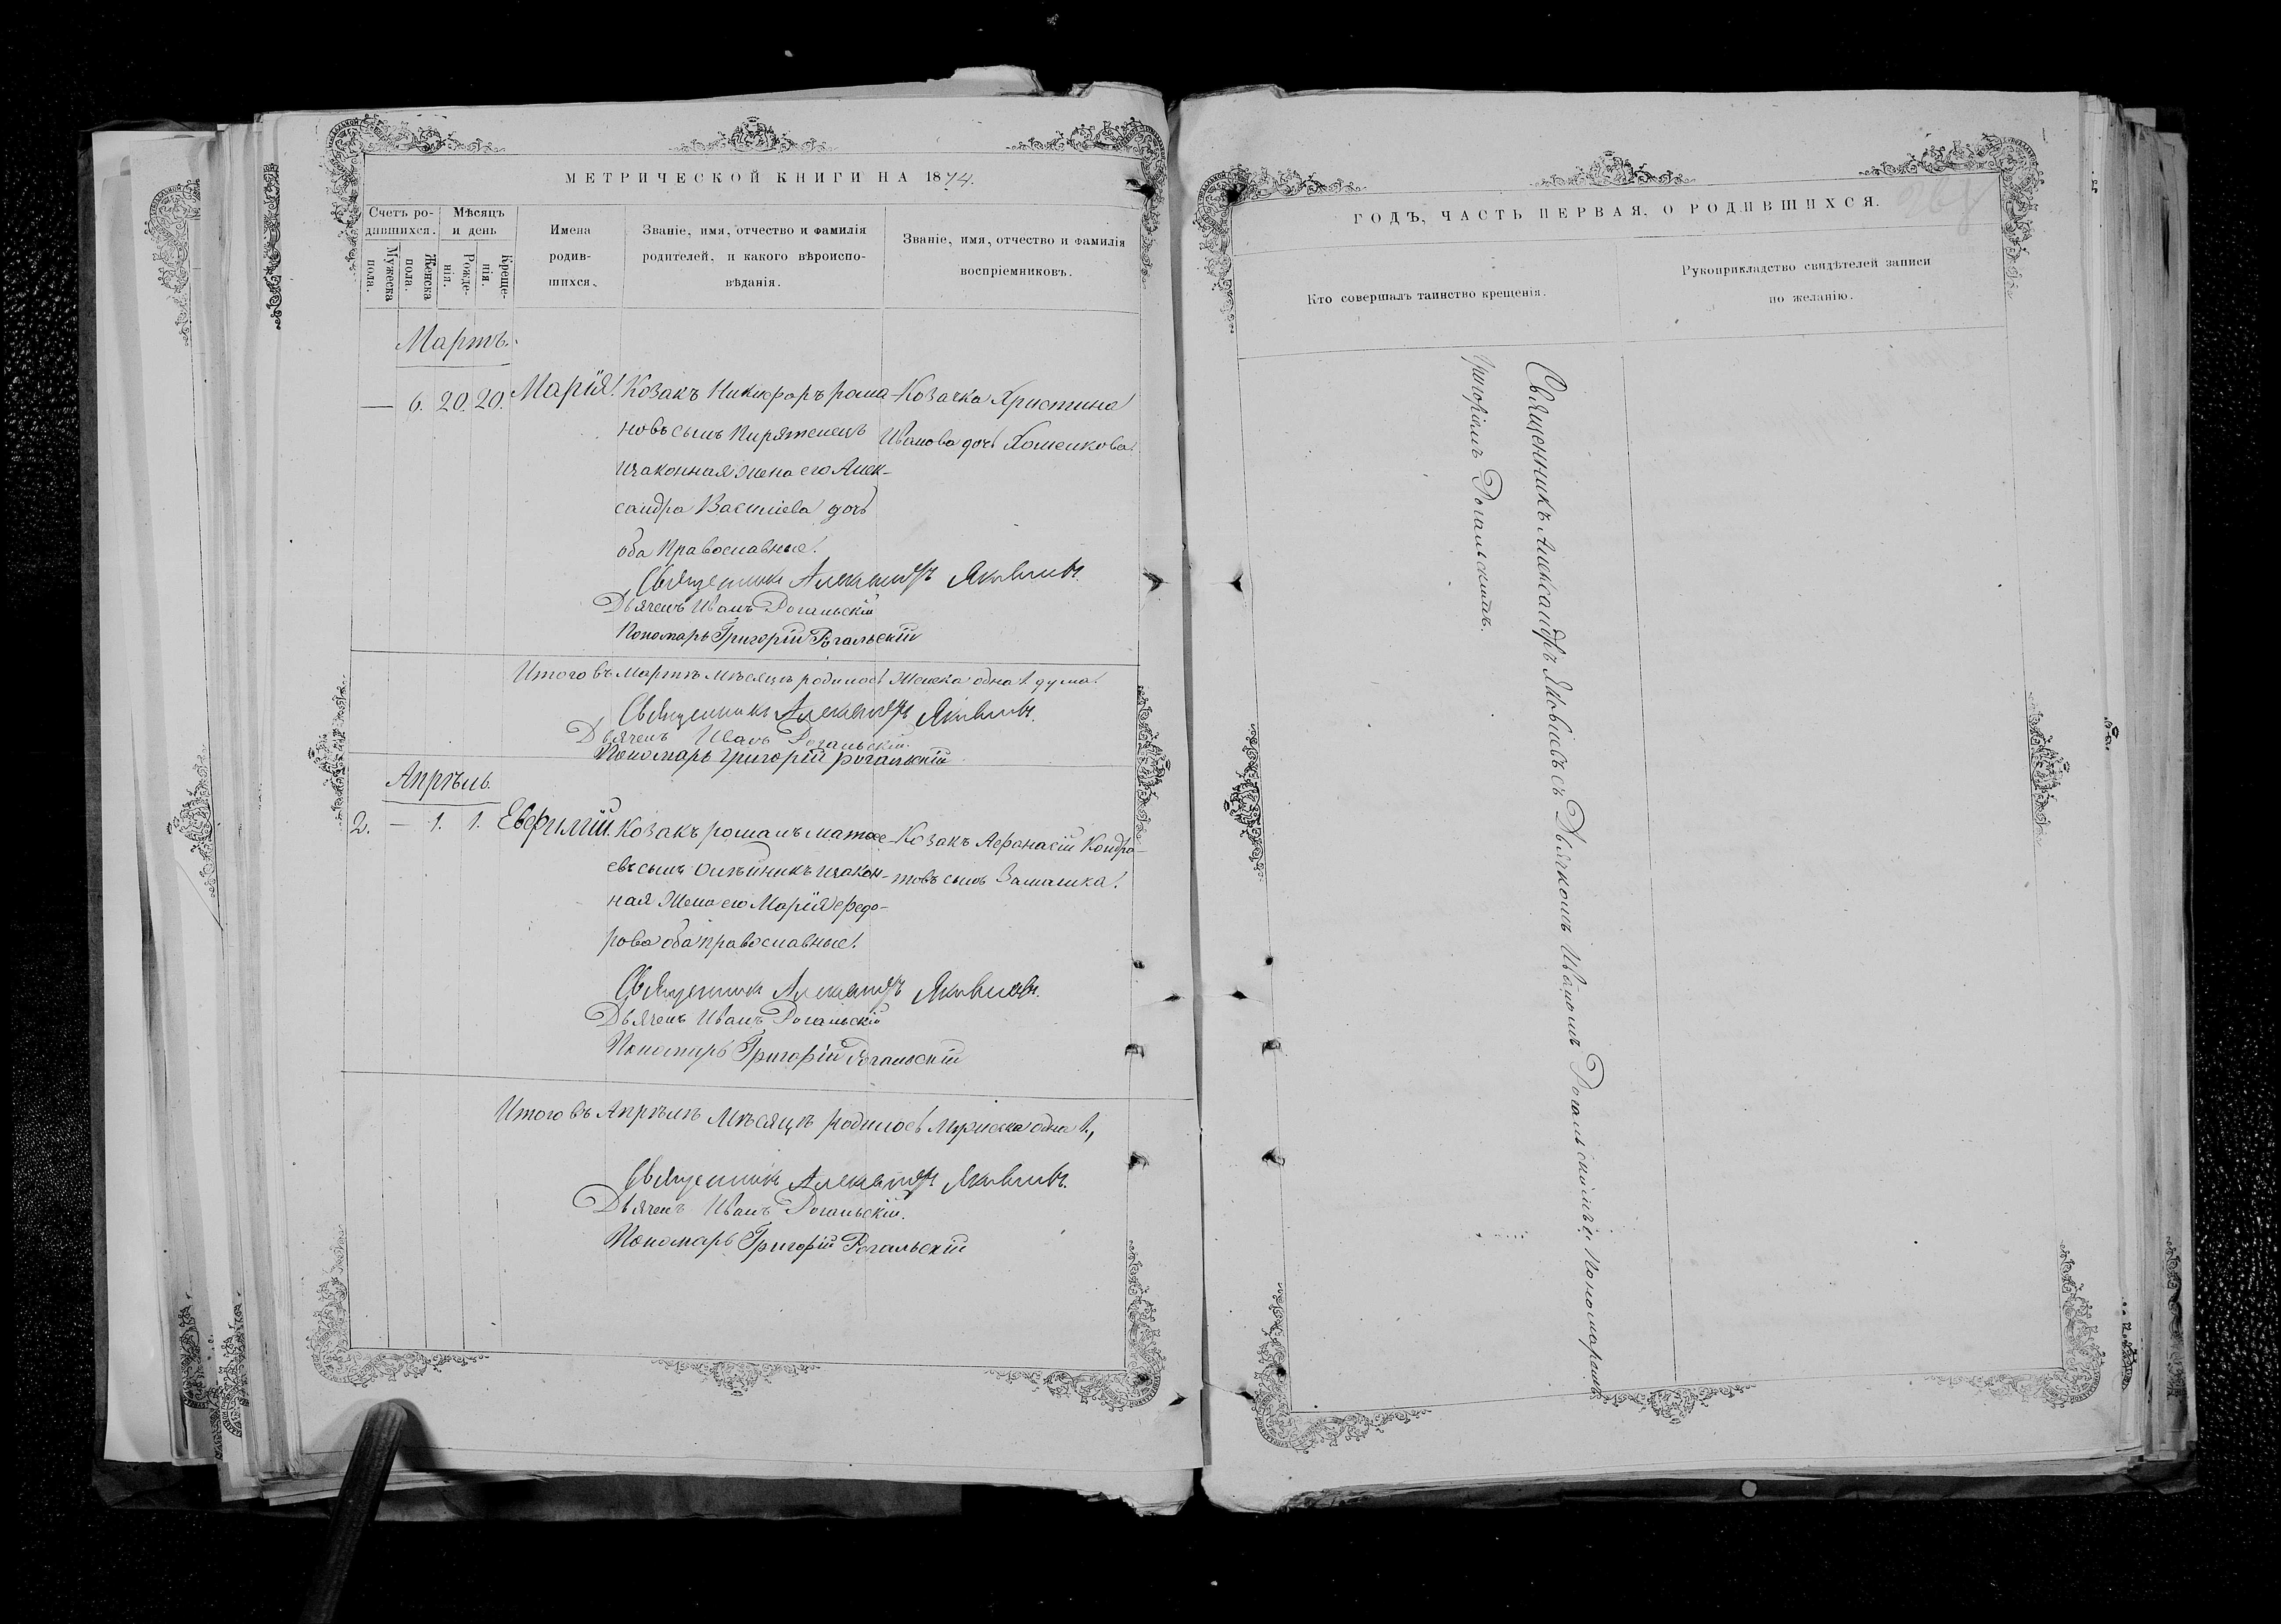 МЕТРИЧЕСКОЙ КНИГИ НА 1874.
Счетъ ро-
дившихся.
Мѣсяцъ
и день
Мужеска
пола.
Женска
пола.
Рожде-
нія.
Креще-
нія.
Имена
родив-
шихся.
Званіе, имя, отчество и фамилія
родителей, и какого вѣроиспо-
вѣданія.
Званіе, имя, отчество и фамилія
воспріемниковъ.
Мартъ.
— 6. 20. 20. Марія. Козакъ Никифоръ рома-
новъ сынъ Пиряженецъ
и законная жена его Алек-
сандра Василіева дочь
оба Православные.
Козачка Христина
Иванова дочь Хоменкова.
Священникъ Александръ Яковлевъ.
Дьячекъ Иванъ Рогальскій
Пономарь Григорій Рогальскій
Итого въ Мартѣ мѣсяцѣ родилось Женска одна 1. душа.
Священникъ Александръ Яковлевъ.
Дьячекъ Иванъ Рогальскій.
Пономарь Григорій Рогальскій
Апрѣль.
2. — 1. 1. Евфимій. Козакъ романъ матве-
евъ сынъ Олѣйникъ и закон-
ная Жена его Марія федо-
рова оба православные.
Козакъ Афанасій Кондра-
товъ сынъ
Священникъ Александръ Яковлевъ.
Дьячекъ Иванъ Рогальскій
Пономарь Григорій Рогальскій
Итого въ Апрѣлѣ Мѣсяцѣ родилось Мужеска одна 1.,
Священникъ Александръ Яковлевъ.
Дьячекъ Иванъ Рогальскій.
Пономарь Григорій Рогальскій
ГОДЪ, ЧАСТЬ ПЕРВАЯ, О РОДИВШИХСЯ.
Кто совершалъ таинство крещенія.
Рукоприкладство свидѣтелей записи
по желанію.
Священникъ Александръ Яковлевъ съ Дьячкомъ Иваномъ Рогальскимъ и Пономаремъ
Григоріемъ Рогальскимъ.